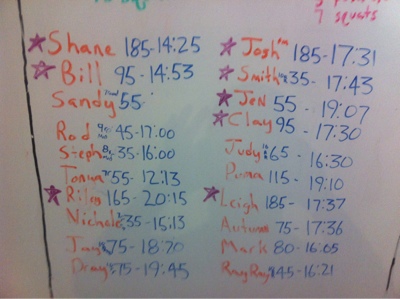 7 squats
Shane 185-14:25
Bill 95-14:53
Sandy 55
Rod 45-17:00
Steph 35-16:00
Tonya 55-12:13
Riley 165-20:15
Nichole 35-15:13
Jay 75-18:20
Dray 75-19:45
Josh 185-17:31
Smith 35-17:43
Jen 55-19:07
Clay 95-17:30
Judy 65-16:30
Puma 115-19:10
Leigh 185-17:37
Autumn 75-17:36
Mark 80-16:05
Ray Ray 45-16:21